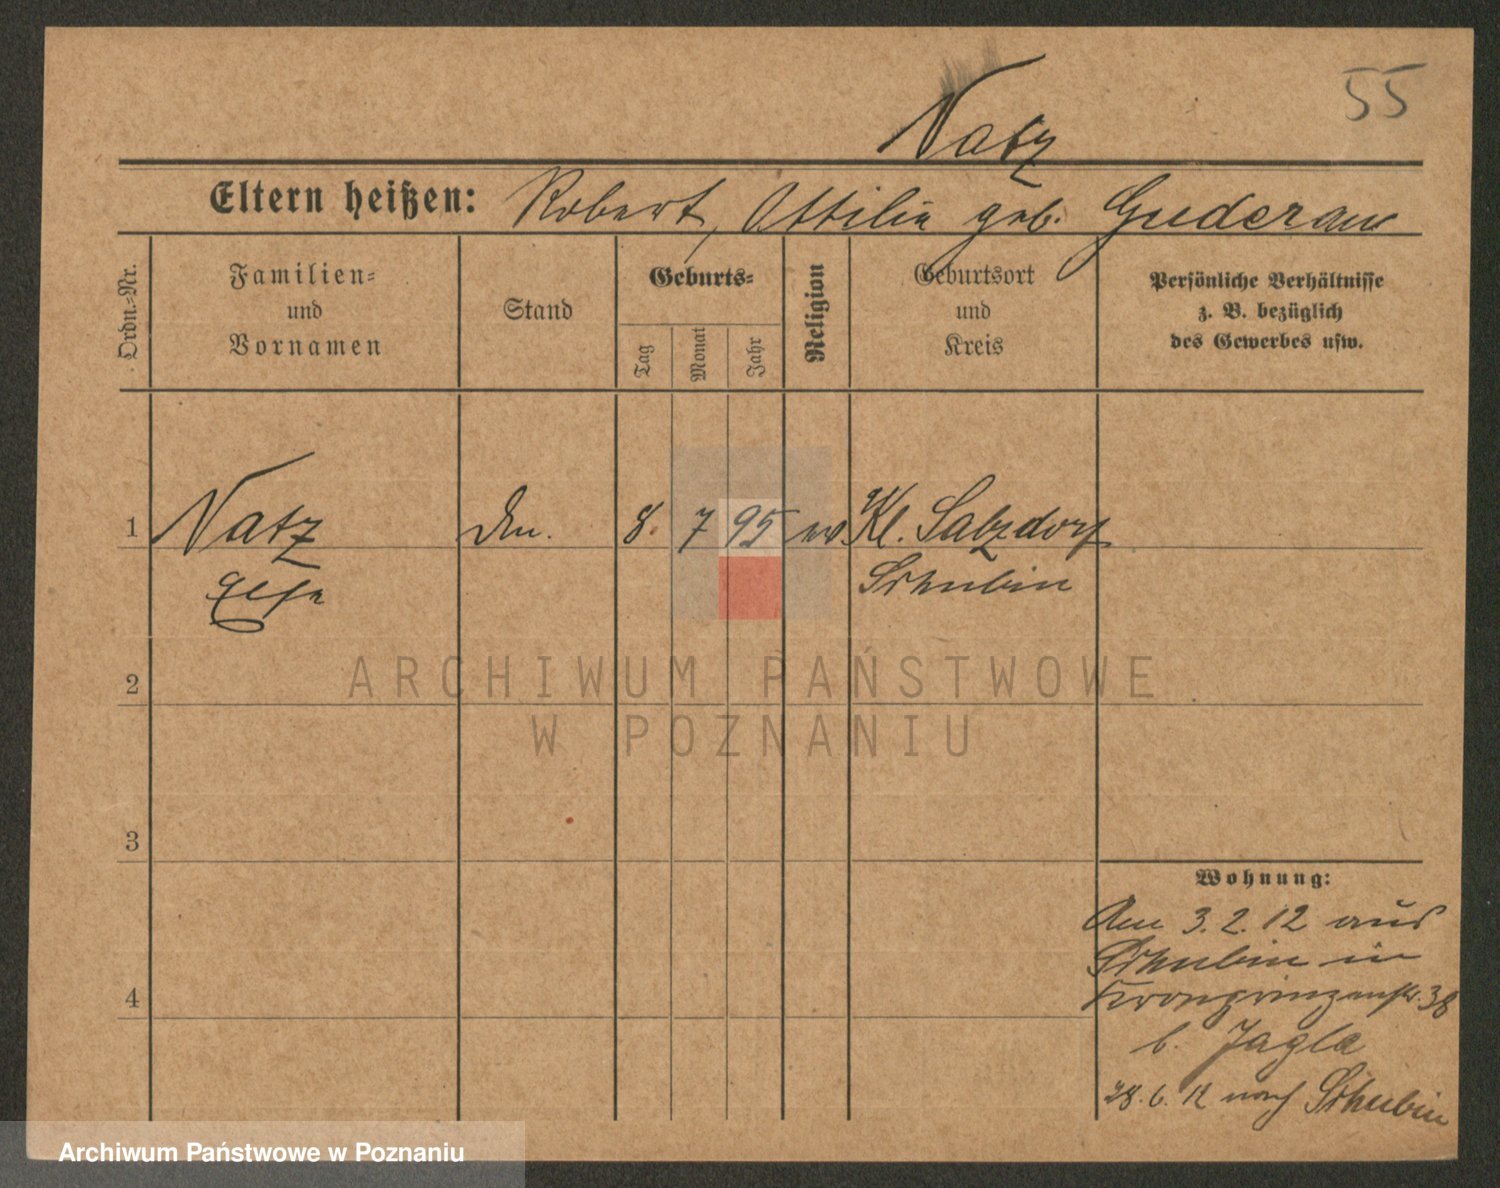 55
Natz
Eltern heißen: Robert, Ottilie geb. Guderau
Ordn.-Nr.
Familien- und Vornamen
Stand
Geburts-
Tag
Monat
Jahr
Religion
Geburtsort und Kreis
Persönliche Verhältnisse
z. B. bezüglich
des Gewerbes usw.
1 Natz 8. 7 95 ev. Kl. Salzdorf
Schubin
2
ARCHIWUM PAŃSTWOWE
W POZNANIU
3
Wohnung:
Am 3. 2. 12 aus
Schubin in
4
Kronprinzenstr. 38
b. Jagla
28. 6. 12 nach Schubin
Archiwum Państwowe w Poznaniu